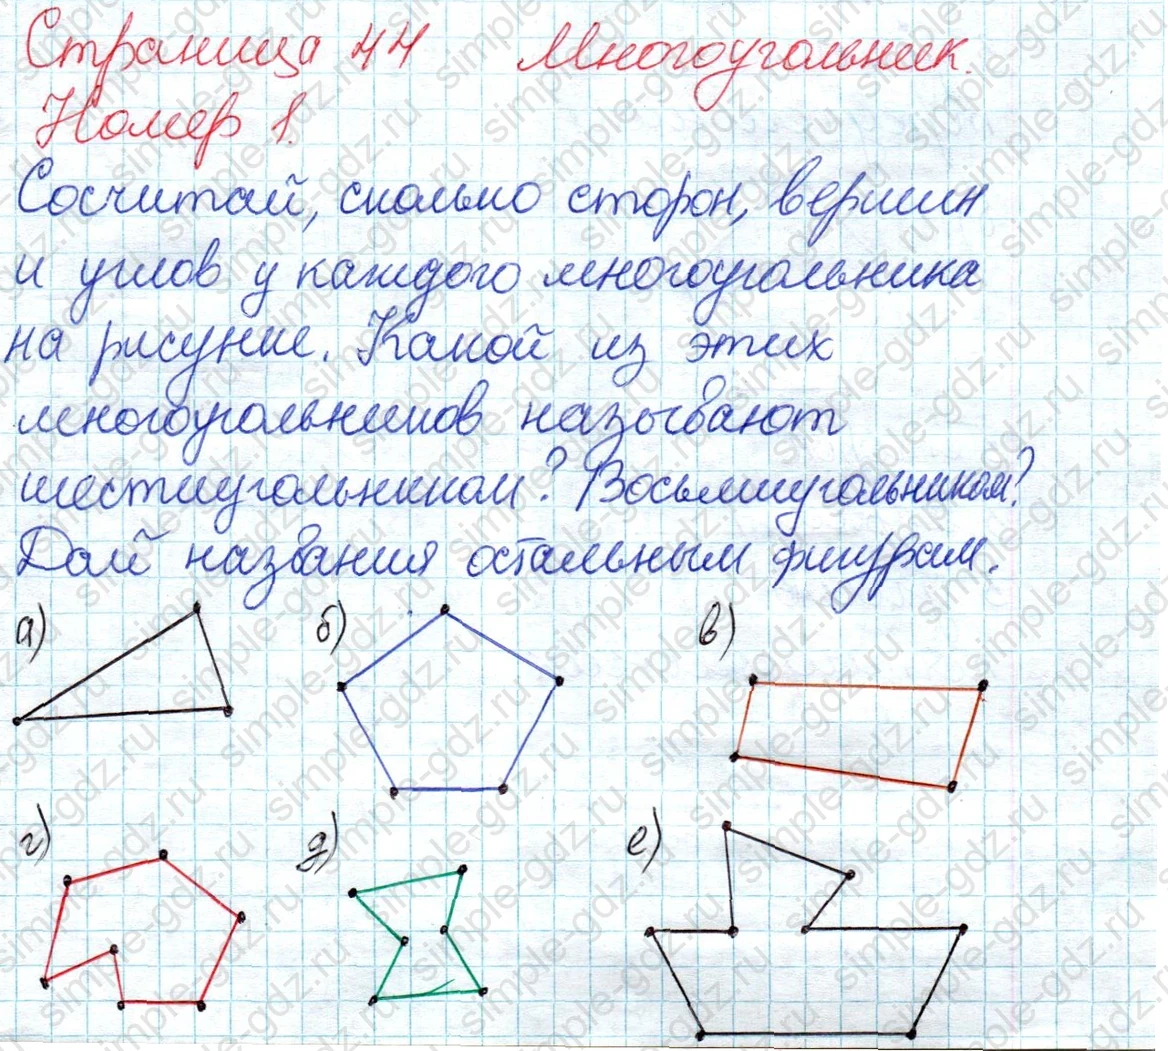 Страница 44 Многоугольник.
Номер 1.
Сосчитай, сколько сторон, вершин
и углов у каждого многоугольника
на рисунке. Какой из этих
многоугольников называют
шестиугольником? Восьмиугольником?
Дай названия остальным фигурам.
а) б) в)
г) д) е)
simple-gdz.ru